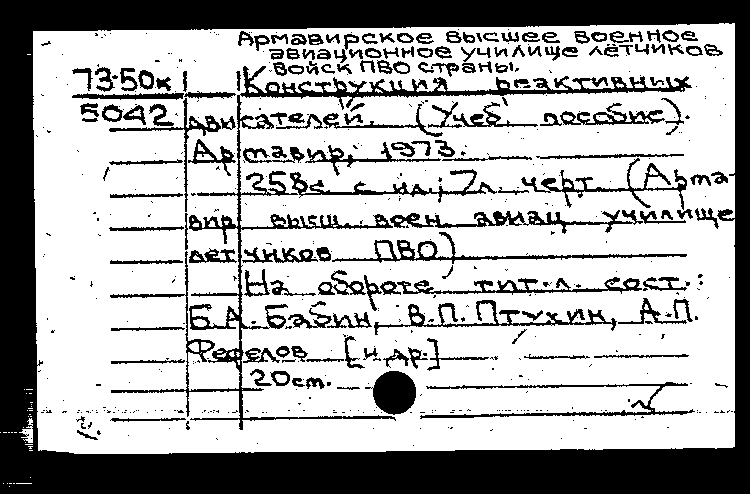 Армавирское высшее военное
авиационное училище лётчиков
войск ПВО страны.
73-50к Конструкция реактивных
5042 двигателей. (Учеб. пособие).
Армавир, 1973.
258с. с ил.; 7л. черт. (Арма-
вир. высш. воен. авиац. училище
летчиков ПВО)
На обороте тит. л. сост.:
Б.А. Бабин, В.П. Птухин, А.П.
Фефелов [и др.]
20см.